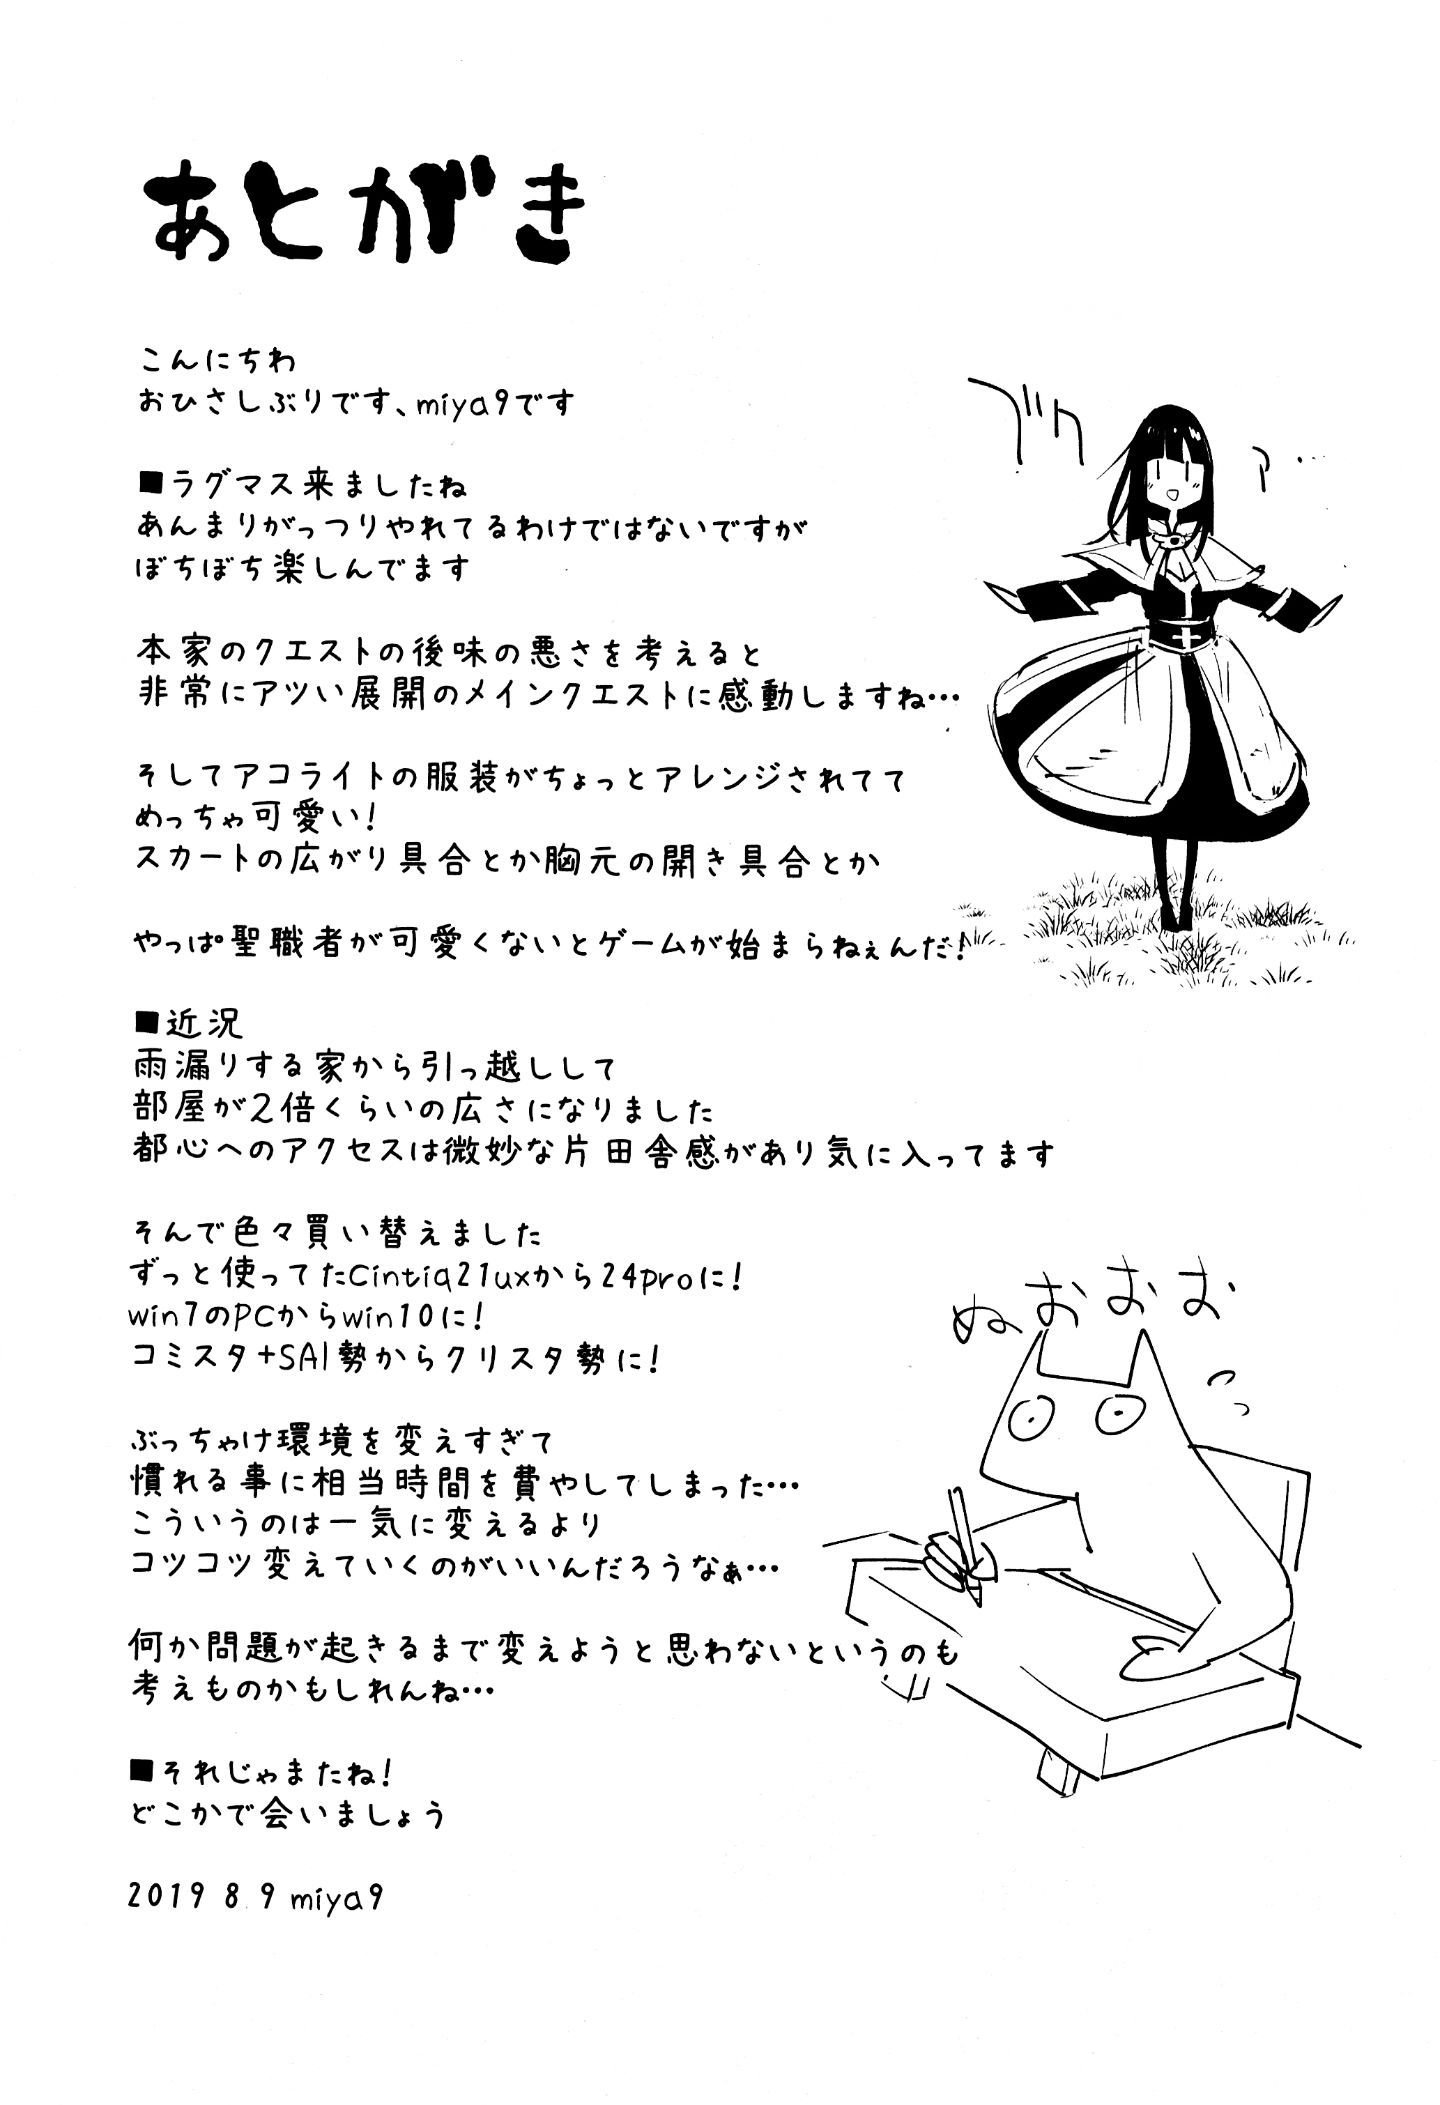 あとがき
こんにちわ
おひさしぶりです、miya9です
■ラグマス来ましたね
あんまりがっつりやれてるわけではないですが
ぼちぼち楽しんでます
本家のクエストの後味の悪さを考えると
非常にアツい展開のメインクエストに感動しますね…
そしてアコライトの服装がちょっとアレンジされてて
めっちゃ可愛い!
スカートの広がり具合とか胸元の開き具合とか
やっぱ聖職者が可愛くないとゲームが始まらねぇんだ!
■近況
雨漏りする家から引っ越しして
部屋が2倍くらいの広さになりました
都心へのアクセスは微妙な片田舎感があり気に入ってます
そんで色々買い替えました
ずっと使ってたCintiq21uxから24proに!
win7のPCからwin10に!
コミスタ+SAI勢からクリスタ勢に!
ぬおおお
ぶっちゃけ環境を変えすぎて
慣れる事に相当時間を費やしてしまった…
こういうのは一気に変えるより
コツコツ変えていくのがいいんだろうなぁ…
何か問題が起きるまで変えようと思わないというのも
考えものかもしれんね…
■それじゃまたね!
どこかで会いましょう
2019 8 9 miya9